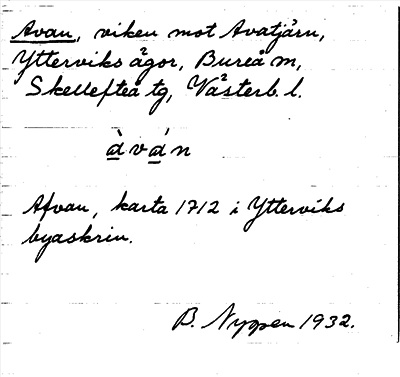 Avan, viken mot Avatjärn,
Ytterviks ägor, Bureå sn,
Skellefteå tg, Västerb. l.
àván
Afvan, karta 1712 i Ytterviks
byaskrin.
B. Nyppen 1932.